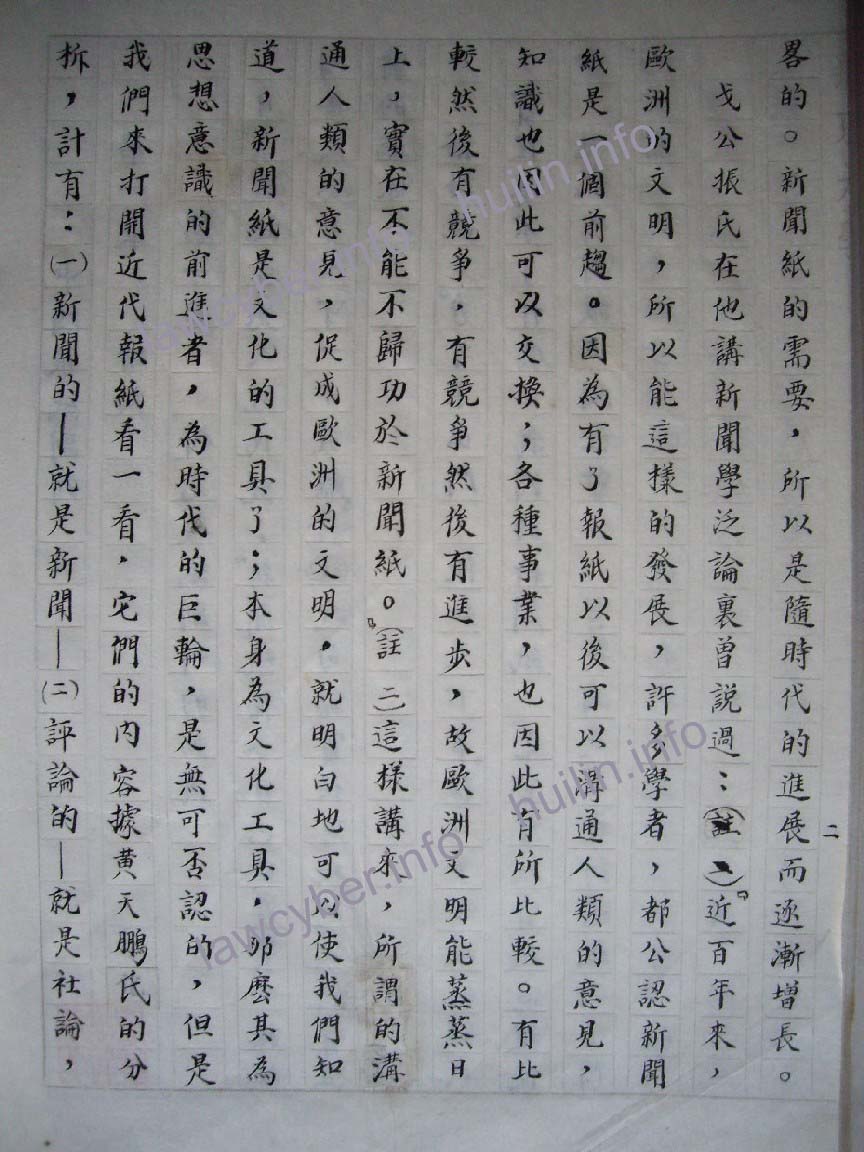 畧的。新聞紙的需要，所以是隨時代的進展而逐漸增長。
戈公振氏在他講新聞學泛論裏曾說過：「近百年來，
歐洲的文明，所以能這樣的發展，許多學者，都公認新聞
紙是一個前趨。因為有了報紙以後可以溝通人類的意見，
知識也因此可以交換；各種事業，也因此有所比較。有比
較然後有競爭，有競爭然後有進步，故歐洲文明能蒸蒸日
上，實在不能不歸功於新聞紙。」（註二）這樣講來，所謂的溝
通人類的意見，促成歐洲的文明，就明白地可以使我們知
道，新聞紙是文化的工具了；本身為文化工具，那麼其為
思想意識的前進者，為時代的巨輪，是無可否認的，但是
我們來打開近代報紙看一看，它們的內容據黄天鵬氏的分
析，計有：㈠新聞的—就是新聞—㈡評論的—就是社論，
二
lawcyber.info huilin.info
lawcyber.info huilin.info